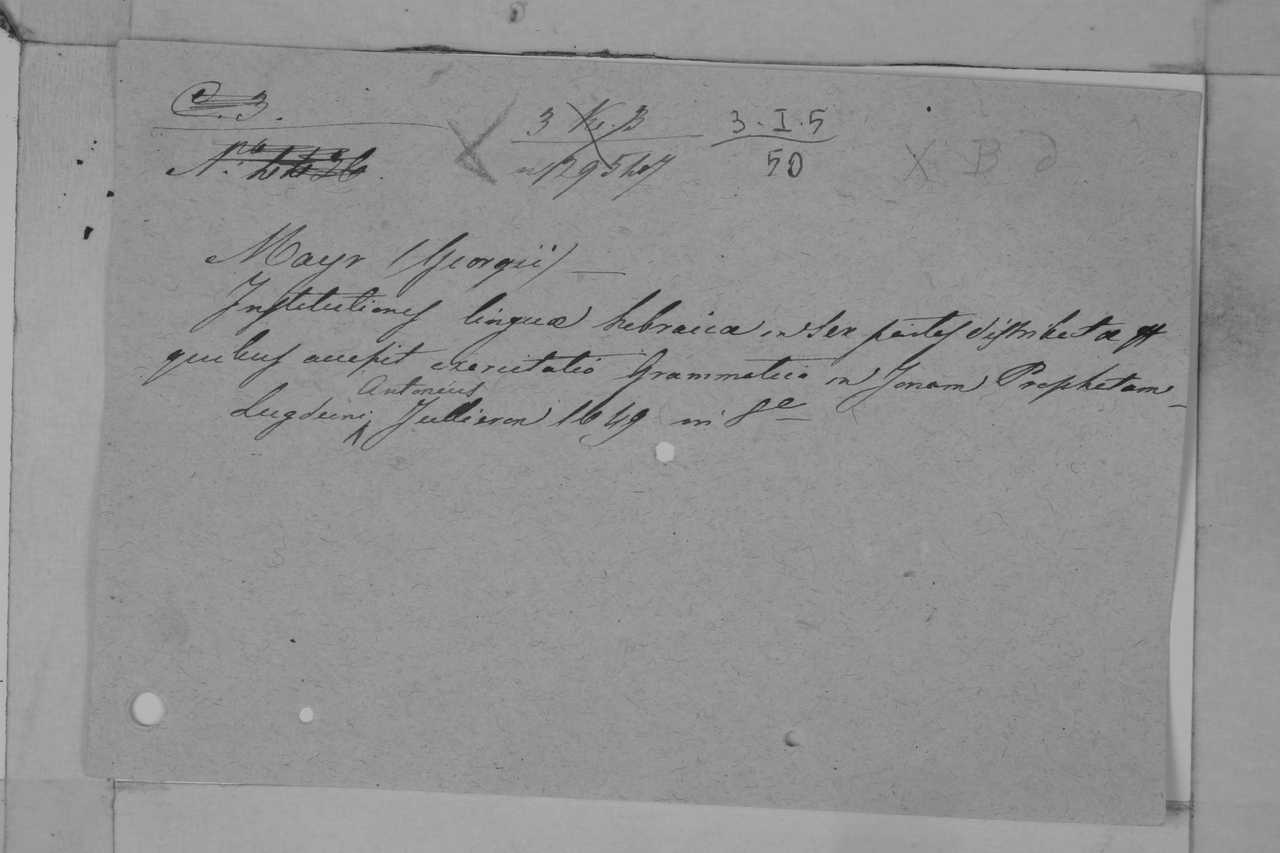 C. 3.
3 K. 3
3. I. 5
N.
n 129547
50
X B d
Mayr (Georgii) —
Institutiones linguæ hebraicæ in sex partes distributæ
quibus accepit exercitatio Grammatica in Jonam Prophetam
Antonius
Lugduni Jullieron 1649 in 8º